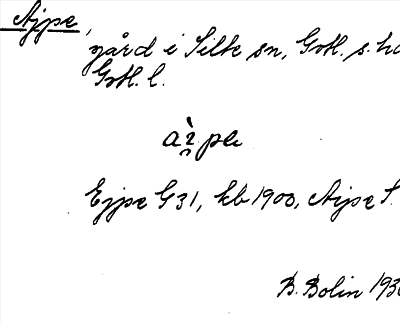 Ajpe,
gård i Silte sn, Gotl. s.
Gotl. l.
aı̀pe
Ejpe G31, kb 1900, Aipe S.
B. Bolin 193